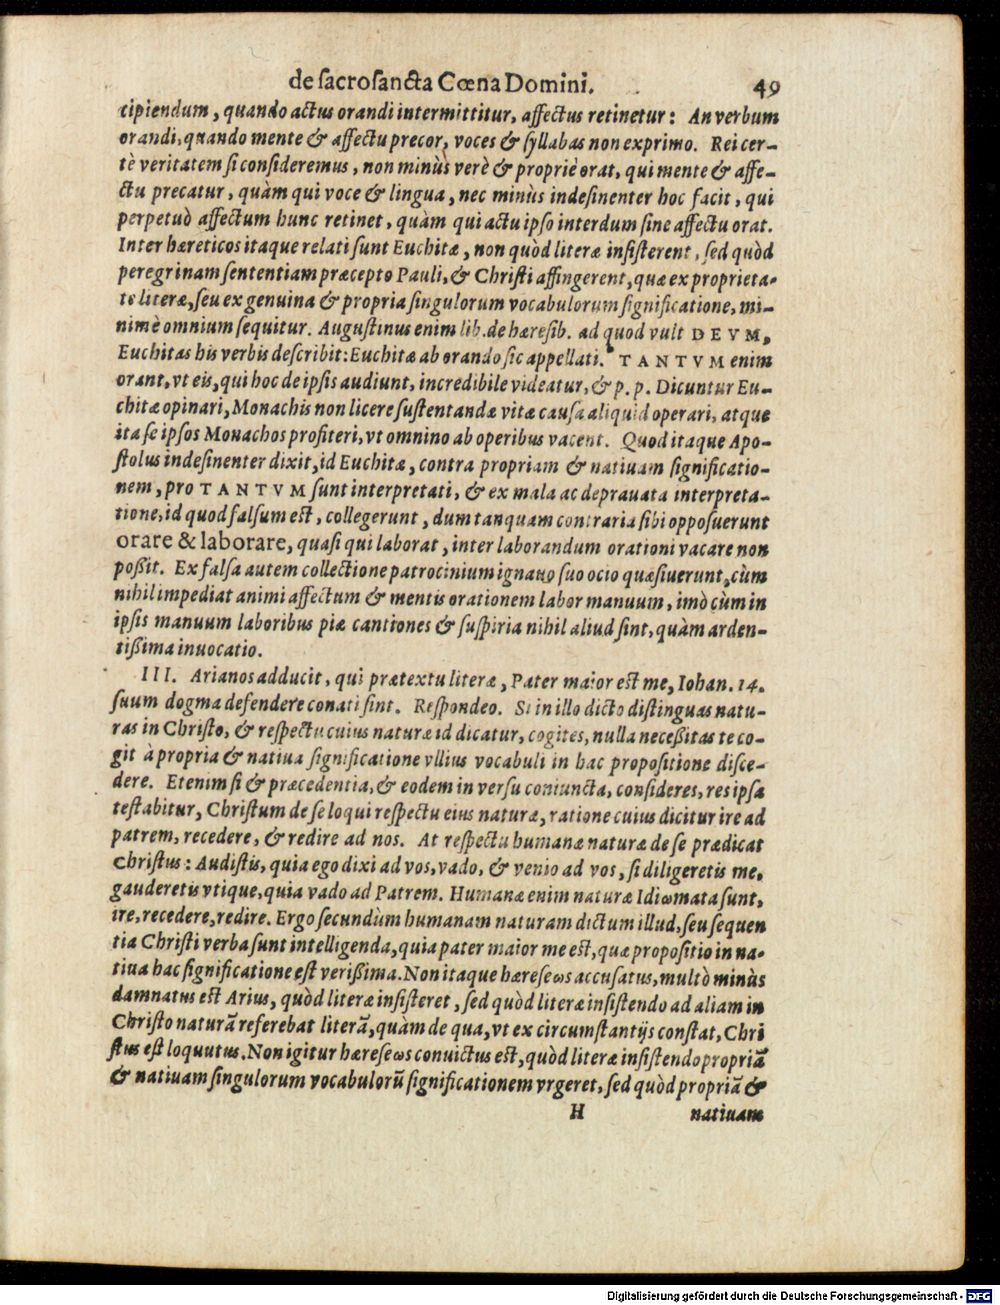 de ſacroſancta Cœna Domini. 49
cipiendum, quando actus orandi intermittitur, affectus retinetur: An verbum
orandi, quando mente & affectu precor, voces & ſyllabas non exprimo. Rei cer-
tè veritatem ſi conſideremus, non minùs verè & propriè orat, qui mente & affe-
ctu precatur, quàm qui voce & lingua, nec minùs indeſinenter hoc facit, qui
perpetuò affectum hunc retinet, quàm qui actu ipſo interdum ſine affectu orat.
Inter hæreticos itaque relati ſunt Euchitæ, non quòd literæ inſiſterent, ſed quòd
peregrinam ſententiam præcepto Pauli, & Chriſti affingerent, quæ ex proprieta-
te literæ, ſeu ex genuina & propria ſingulorum vocabulorum ſignificatione, mi-
nimè omnium ſequitur. Auguſtinus enim lib. de hæreſib. ad quod vult DEVM,
Euchitas his verbis deſcribit: Euchitæ ab orando ſic appellati. TANTVM enim
orant, vt eis, qui hoc de ipſis audiunt, incredibile videatur, & p. p. Dicuntur Eu-
chitæ opinari, Monachis non licere ſuſtentandæ vitæ cauſa aliquid operari, atque
ita ſe ipſos Monachos profiteri, vt omnino ab operibus vacent. Quod itaque Apo-
ſtolus indeſinenter dixit, id Euchitæ, contra propriam & natiuam ſignificatio-
nem, pro TANTVM ſunt interpretati, & ex mala ac deprauata interpreta-
tione, id quod falſum eſt, collegerunt, dum tanquam contraria ſibi oppoſuerunt
orare & laborare, quaſi qui laborat, inter laborandum orationi vacare non
poßit. Ex falſa autem collectione patrocinium ignauo ſuo ocio quæſiuerunt, cùm
nihil impediat animi affectum & mentis orationem labor manuum, imò cùm in
ipſis manuum laboribus piæ cantiones & ſuſpiria nihil aliud ſint, quàm arden-
tißima inuocatio.
III. Arianos adducit, qui prætextu literæ, Pater maior eſt me, Iohan. 14.
ſuum dogma defendere conati ſint. Reſpondeo. Si in illo dicto diſtinguas natu-
ras in Chriſto, & reſpectu cuius naturæ id dicatur, cogites, nulla neceßitas te co-
git à propria & natiua ſignificatione vllius vocabuli in hac propoſitione diſce-
dere. Etenim ſi & præcedentia, & eodem in verſu coniuncta, conſideres, res ipſa
teſtabitur, Chriſtum de ſe loqui reſpectu eius naturæ, ratione cuius dicitur ire ad
patrem, recedere, & redire ad nos. At reſpectu humanæ naturæ de ſe prædicat
Chriſtus: Audiſtis, quia ego dixi ad vos, vado, & venio ad vos, ſi diligeretis me,
gauderetis vtique, quia vado ad Patrem. Humanæ enim naturæ Idiωmata ſunt,
ire, recedere, redire. Ergo ſecundùm humanam naturam dictum illud, ſeu ſequen
tia Chriſti verba ſunt intelligenda, quia pater maior me eſt, quæ propoſitio in na-
tiua hac ſignificatione eſt verißima. Non itaque hæreſeωs accuſatus, multò minùs
damnatus eſt Arius, quòd literæ inſiſteret, ſed quòd literæ inſiſtendo ad aliam in
Chriſto naturã referebat literã, quàm de qua, vt ex circumſtantijs conſtat, Chri
ſtus eſt loquutus. Non igitur hæreſeωs conuictus eſt, quòd literæ inſiſtendo propriã
& natiuam ſingulorum vocabulorũ ſignificationem vrgeret, ſed quòd propriã &
H natiuam
Digitalisierung gefördert durch die Deutsche Forschungsgemeinschaft - DFG